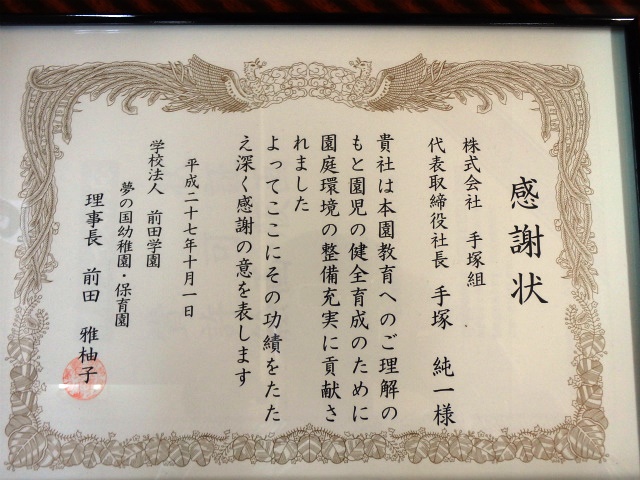 感謝状
株式会社 手塚組
代表取締役社長 手塚 純一様
貴社は本園教育へのご理解の
もと園児の健全育成のために
園庭環境の整備充実に貢献さ
れました
よってここにその功績をたた
え深く感謝の意を表します
平成二十七年十月一日
学校法人 前田学園
夢の国幼稚園・保育園
理事長 前田 雅柚子